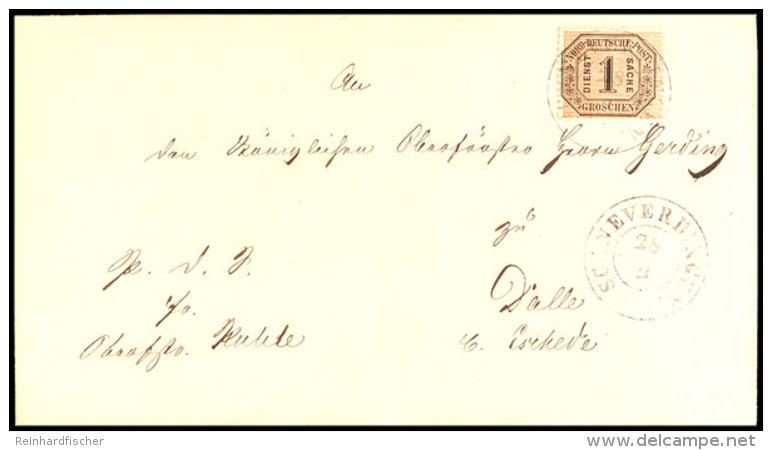 NORD-DEUTSCHE-POST
DIENST 1 SACHE
GROSCHEN
An
den Königlichen Oberförster Herrn Gerding
SCHNEVERDINGEN
28
3
zu
p. d. S.
Dalle
Oberfstr. Kuhle
b. Eschede
Reinhardfischer
www.delcampe.net